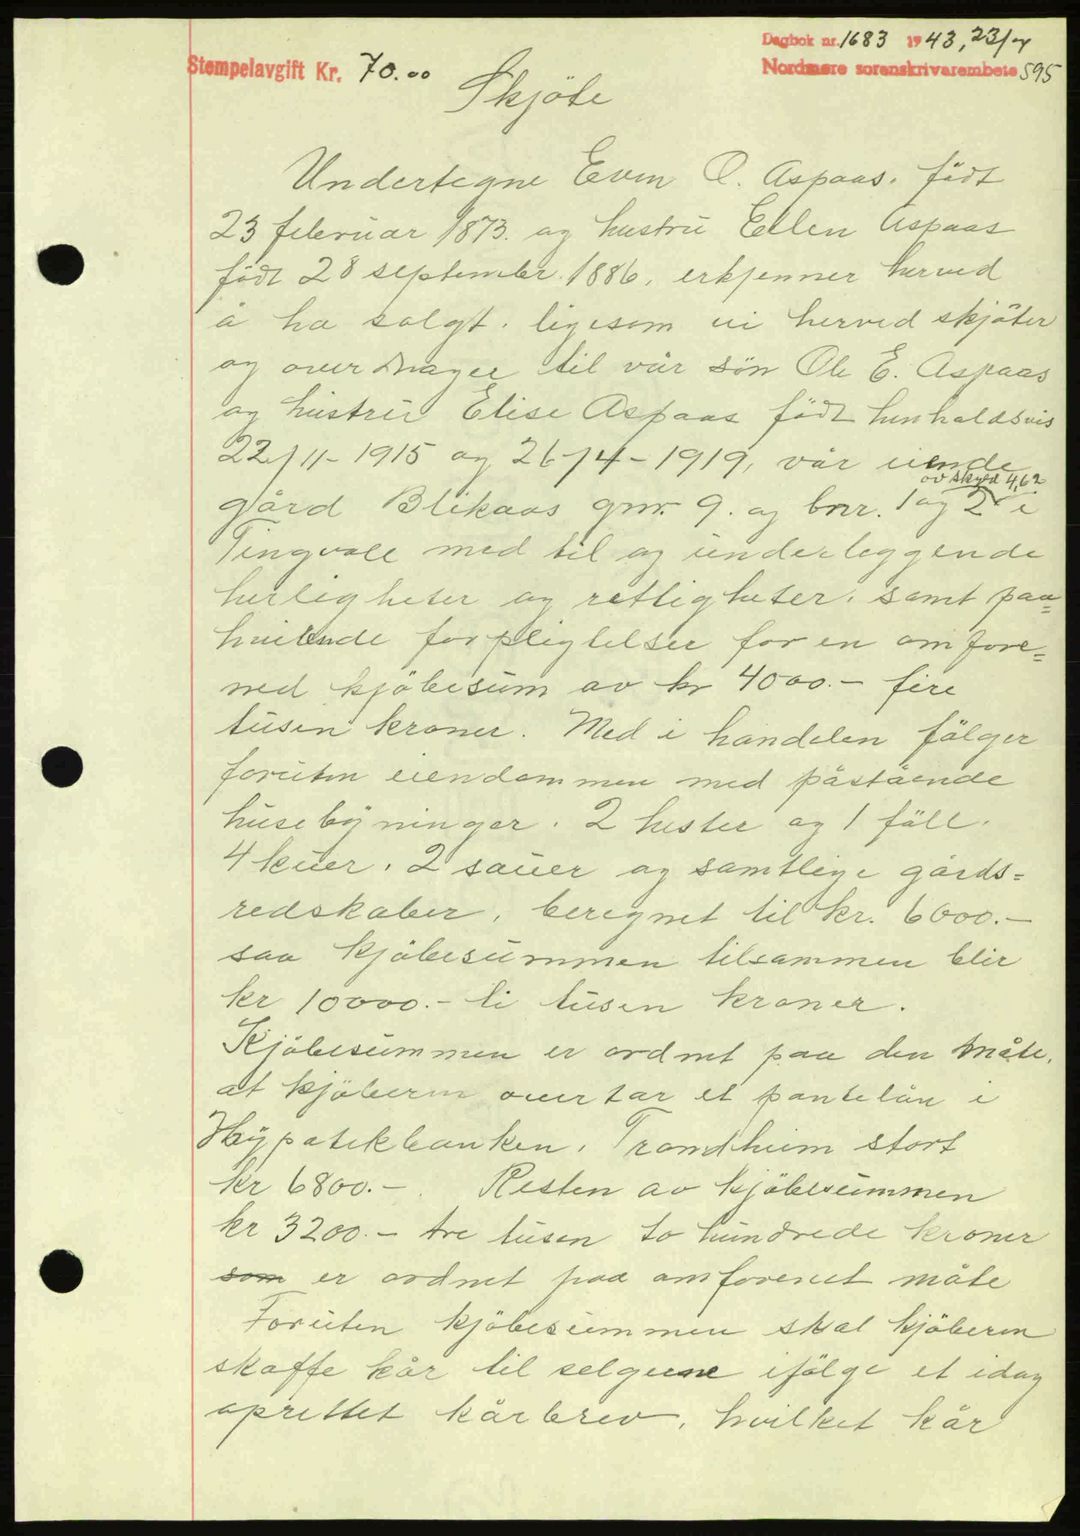 Dagbok nr. 1683 1943, 23/7
Stempelavgift Kr. 70.00
Nordmøre sorenskrivarembete 595
Skjöte
Undertegne Even O. Aspaas. födt
23 februar 1873. og hustru Ellen Aspaas
födt 28 september 1886, erkjenner herved
å ha solgt. ligesom vi herved skjöter
og overdrager til vår sön Ole E. Aspaas
og hustru Elise Aspaas födt henholdsvis
22/11-1915 og 26/4-1919, vår eiende
av skyld 4,62
gård Blikaas gnr. 9. og bnr. 1 og 2 i
Tingvoll med til og underleggende
herligheter og rettigheter. samt paa=
hvilende forpligtelser for en omfore=
ned kjöbesum av kr 4000.- fire
tusen kroner. Med i handelen fölger
foruten eiendommen med påstående
husebyninger. 2 hester og 1 föll.
4 kuer. 2 sauer og samtlige gårds=
redskaber, beregnet til kr. 6000.-
saa kjöbesummen tilsammen blir
kr 10000.- ti tusen kroner.
Kjöbesummen er ordnet paa den måte,
at kjöberen overtar et pantelån i
Hypotekbanken, Trondheim stort
kr 6800.-. Resten av kjöbesummen
kr 3200.- tre tusen to hundrede kroner
som er ordnet paa omforenet måte
Foruten kjöbesummen skal kjöberen
skaffe kår til selgerne ifölge et idag
oprettet kårbrev, hvilket kår